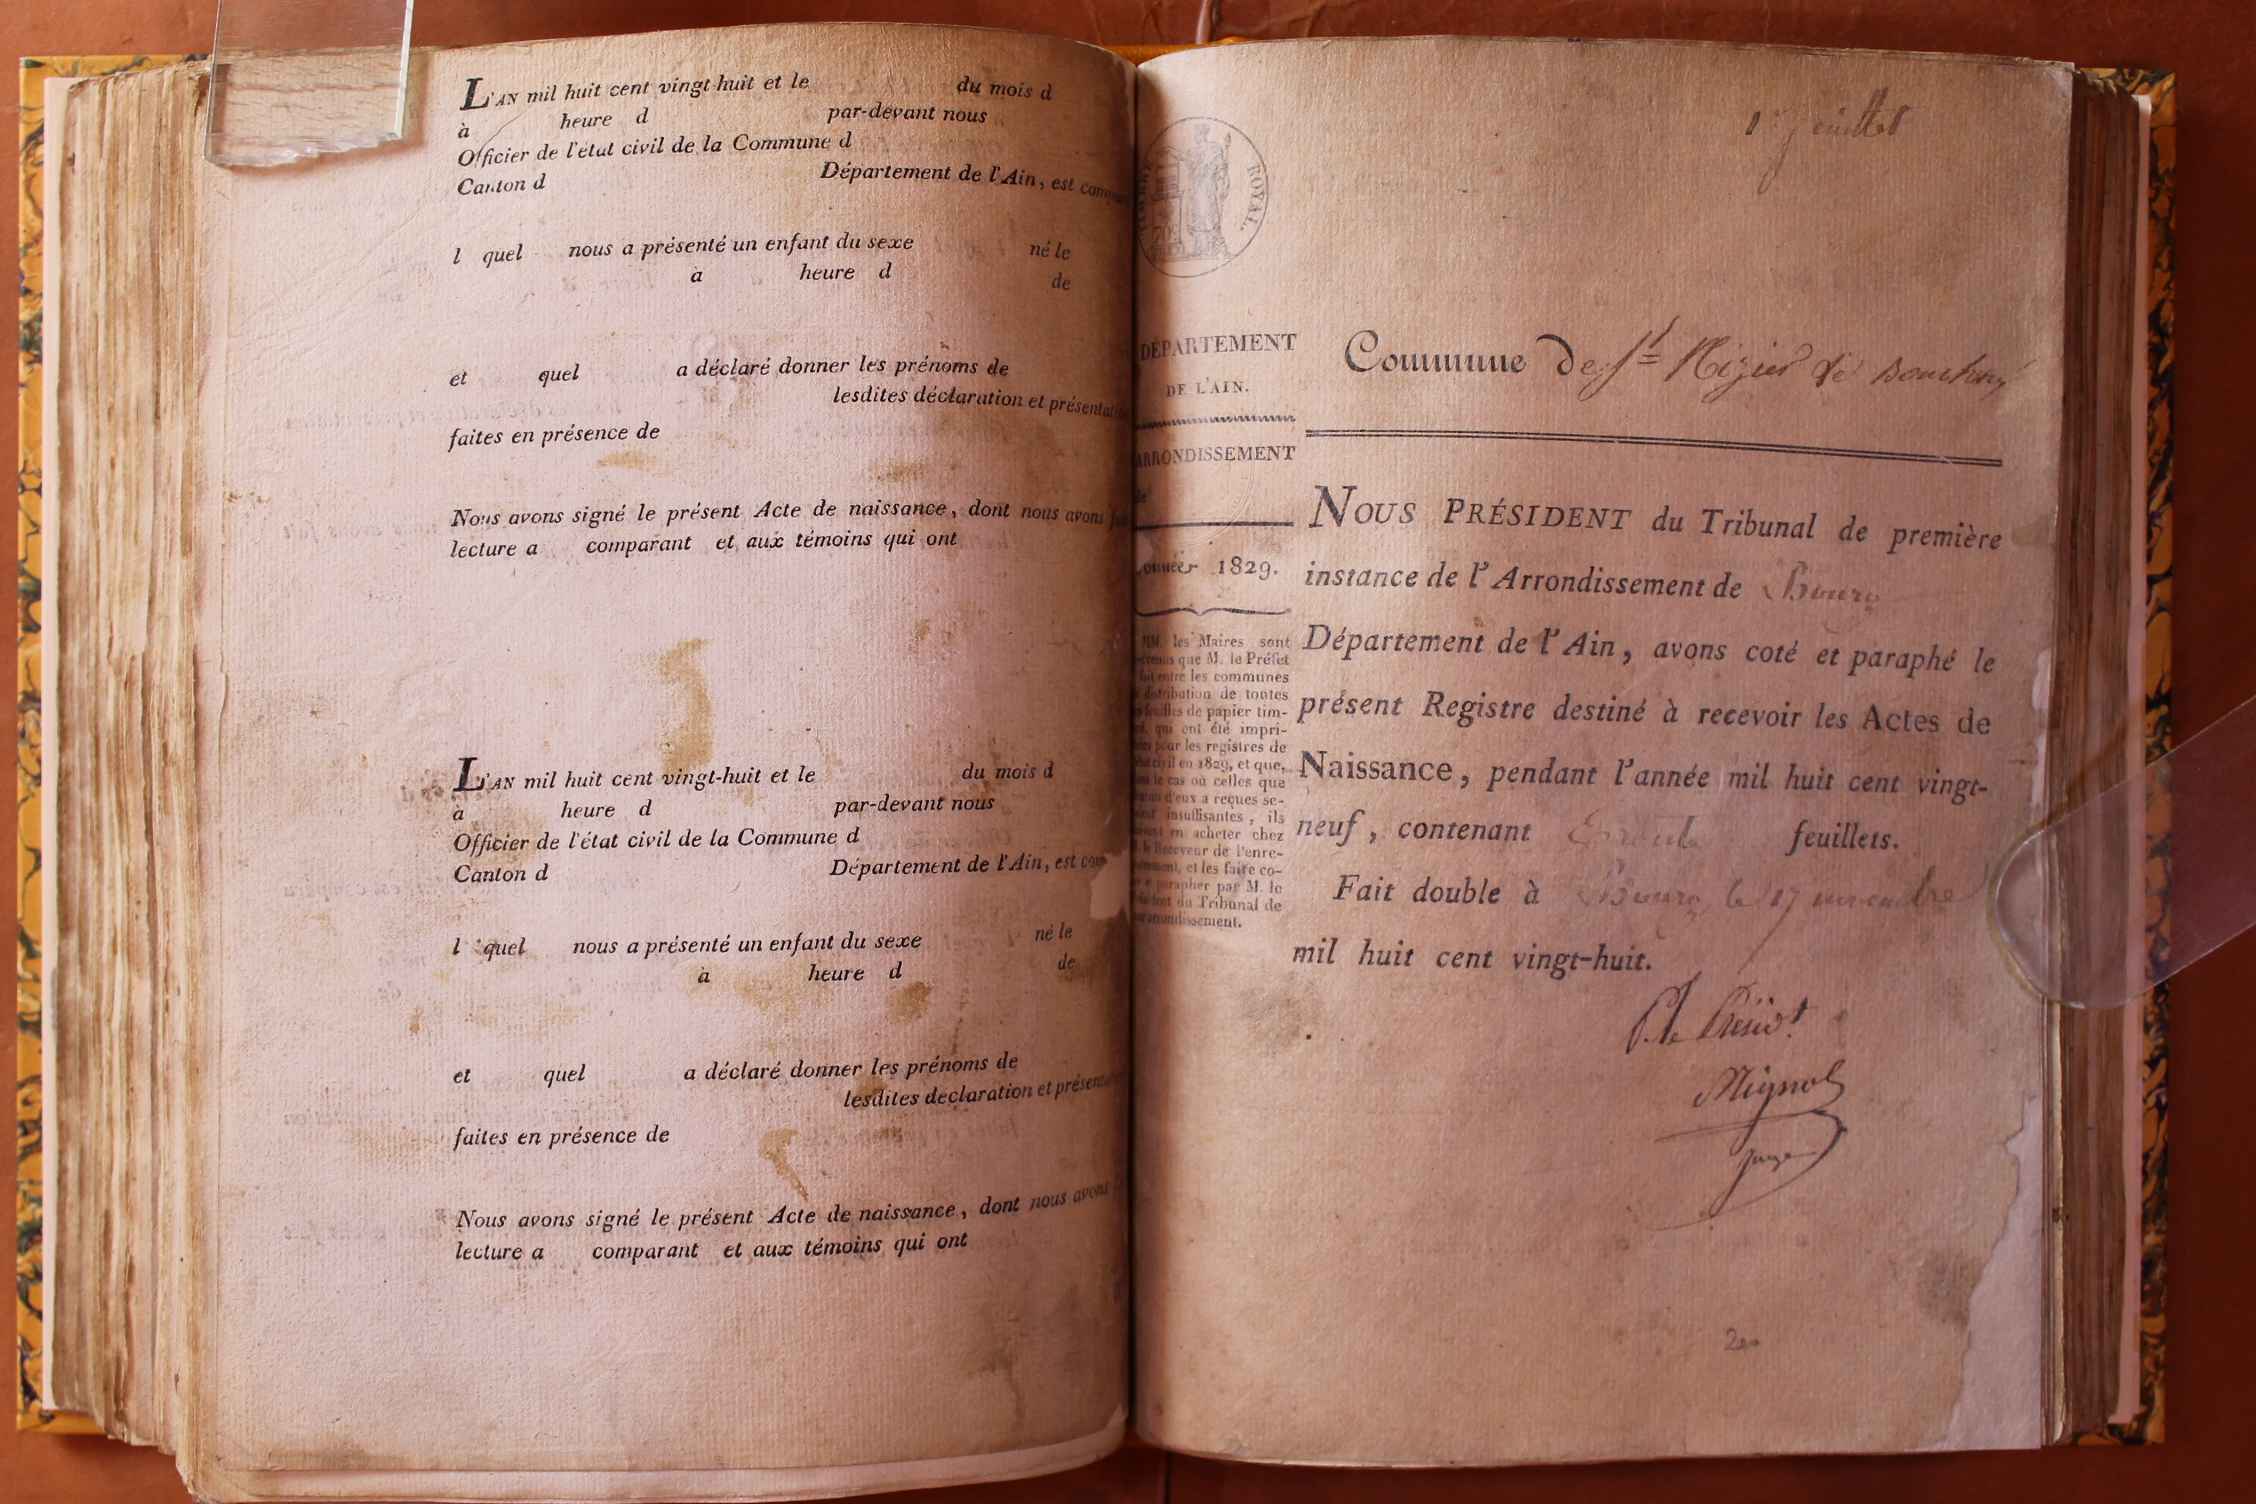 L'AN mil huit cent vingt-huit et le du mois d
à heure d par-devant nous
Officier de l'état civil de la Commune d
Canton d Département de l'Ain, est
l quel nous a présenté un enfant du sexe né le
à heure d de
et quel a déclaré donner les prénoms de
lesdites déclaration et
faites en présence de
Nous avons signé le présent Acte de naissance, dont nous avons
lecture a comparant et aux témoins qui ont
L'AN mil huit cent vingt-huit et le du mois d
à heure d par-devant nous
Officier de l'état civil de la Commune d
Canton d Département de l'Ain, est
l quel nous a présenté un enfant du sexe né le
à heure d de
et quel a déclaré donner les prénoms de
lesdites declaration et
faites en présence de
Nous avons signé le présent Acte de naissance, dont nous avons
lecture a comparant et aux témoins qui ont
1er feuillet
ROYAL.
DÉPARTEMENT
DE L'AIN.
ARRONDISSEMENT
de
Année 1829.
MM. les Maires sont
que M. le Préfet
entre les communes
distribution de toutes
feuilles de papier tim-
qui ont été impri-
pour les registres de
civil en 1829, et que,
le cas où celles que
d'eux a reçues se-
insuffisantes, ils
en acheter chez
le Receveur de l'enre-
et les faire co-
parapher par M. le
du Tribunal de
arrondissement.
Commune De St Nizier de Bouchoux
NOUS PRÉSIDENT du Tribunal de première
instance de l'Arrondissement de Bourg
Département de l'Ain, avons coté et paraphé le
présent Registre destiné à recevoir les Actes de
Naissance, pendant l'année mil huit cent vingt-
neuf, contenant feuillets.
Fait double à Bourg, le 17 novembre
mil huit cent vingt-huit.
P. le Présidt
Mignot
juge